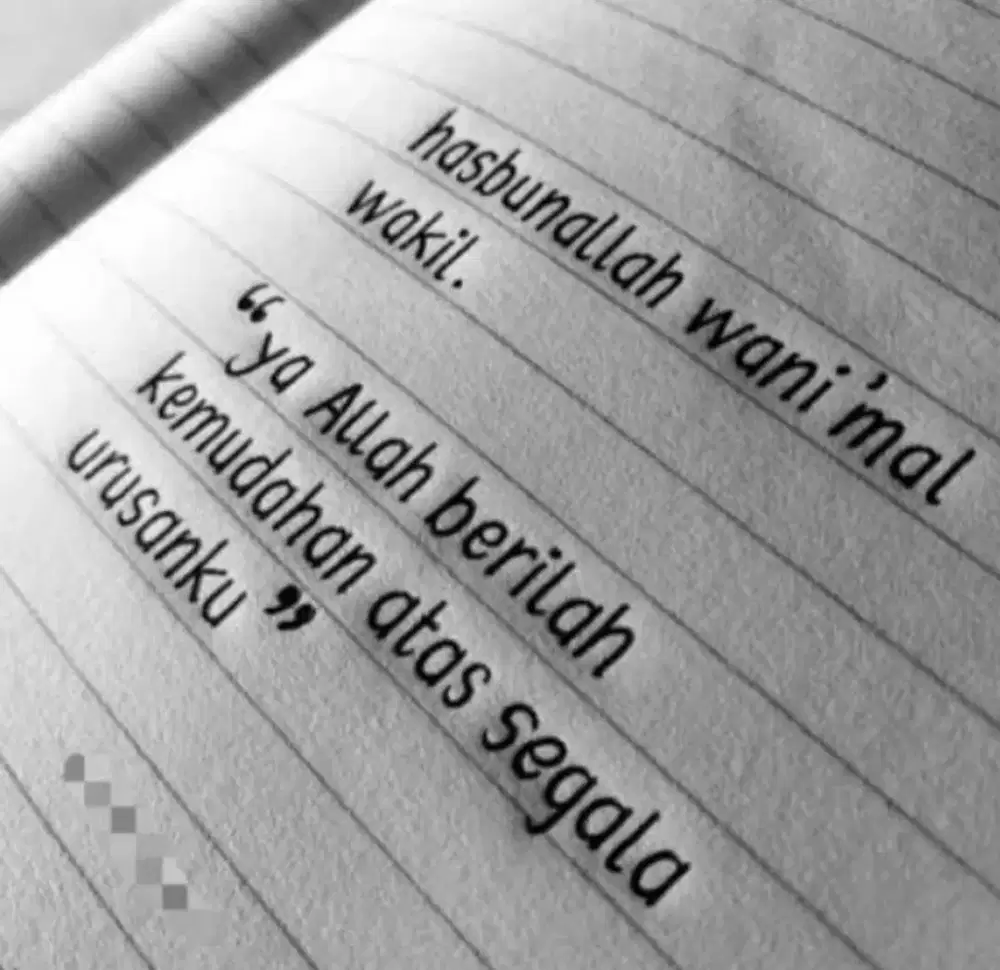 hasbunallah wani'mal
wakil.
“ya Allah berilah
kemudahan atas segala
urusanku”